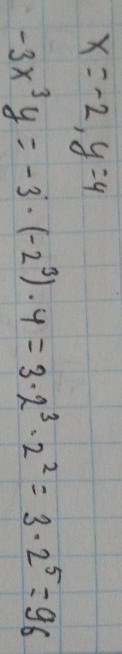 x = -2, y = 4
-3x³y = -3 · (-2³) · 4 = 3 · 2³ · 2² = 3 · 2⁵ = 96